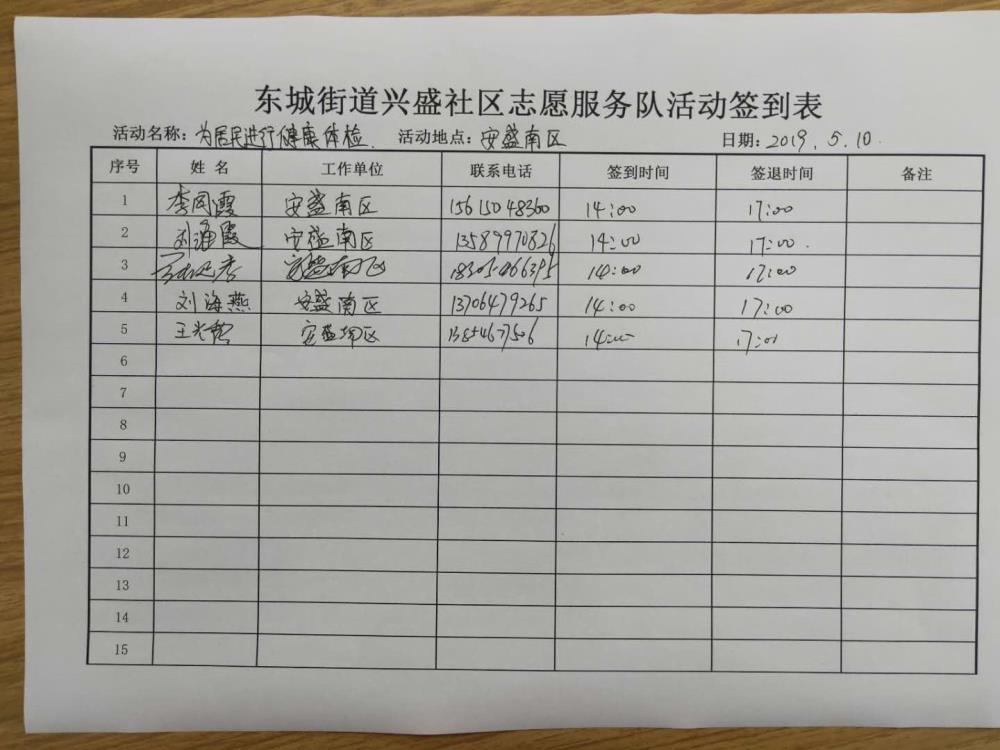 东城街道兴盛社区志愿服务队活动签到表
活动名称：为居民进行健康体检. 活动地点：安盛南区 日期：2019.5.10.
序号 姓名 工作单位 联系电话 签到时间 签退时间 备注
1 李同霞 安盛南区 15615048360 14:00 17:00
2 刘海霞 安盛南区 13589970826 14:00 17:00.
3 安盛南区 14:00 17:00
4 刘海燕 安盛南区 13706479265 14:00 17:00
5 安盛南区 13854677506 14:00 17:00
6
7
8
9
10
11
12
13
14
15